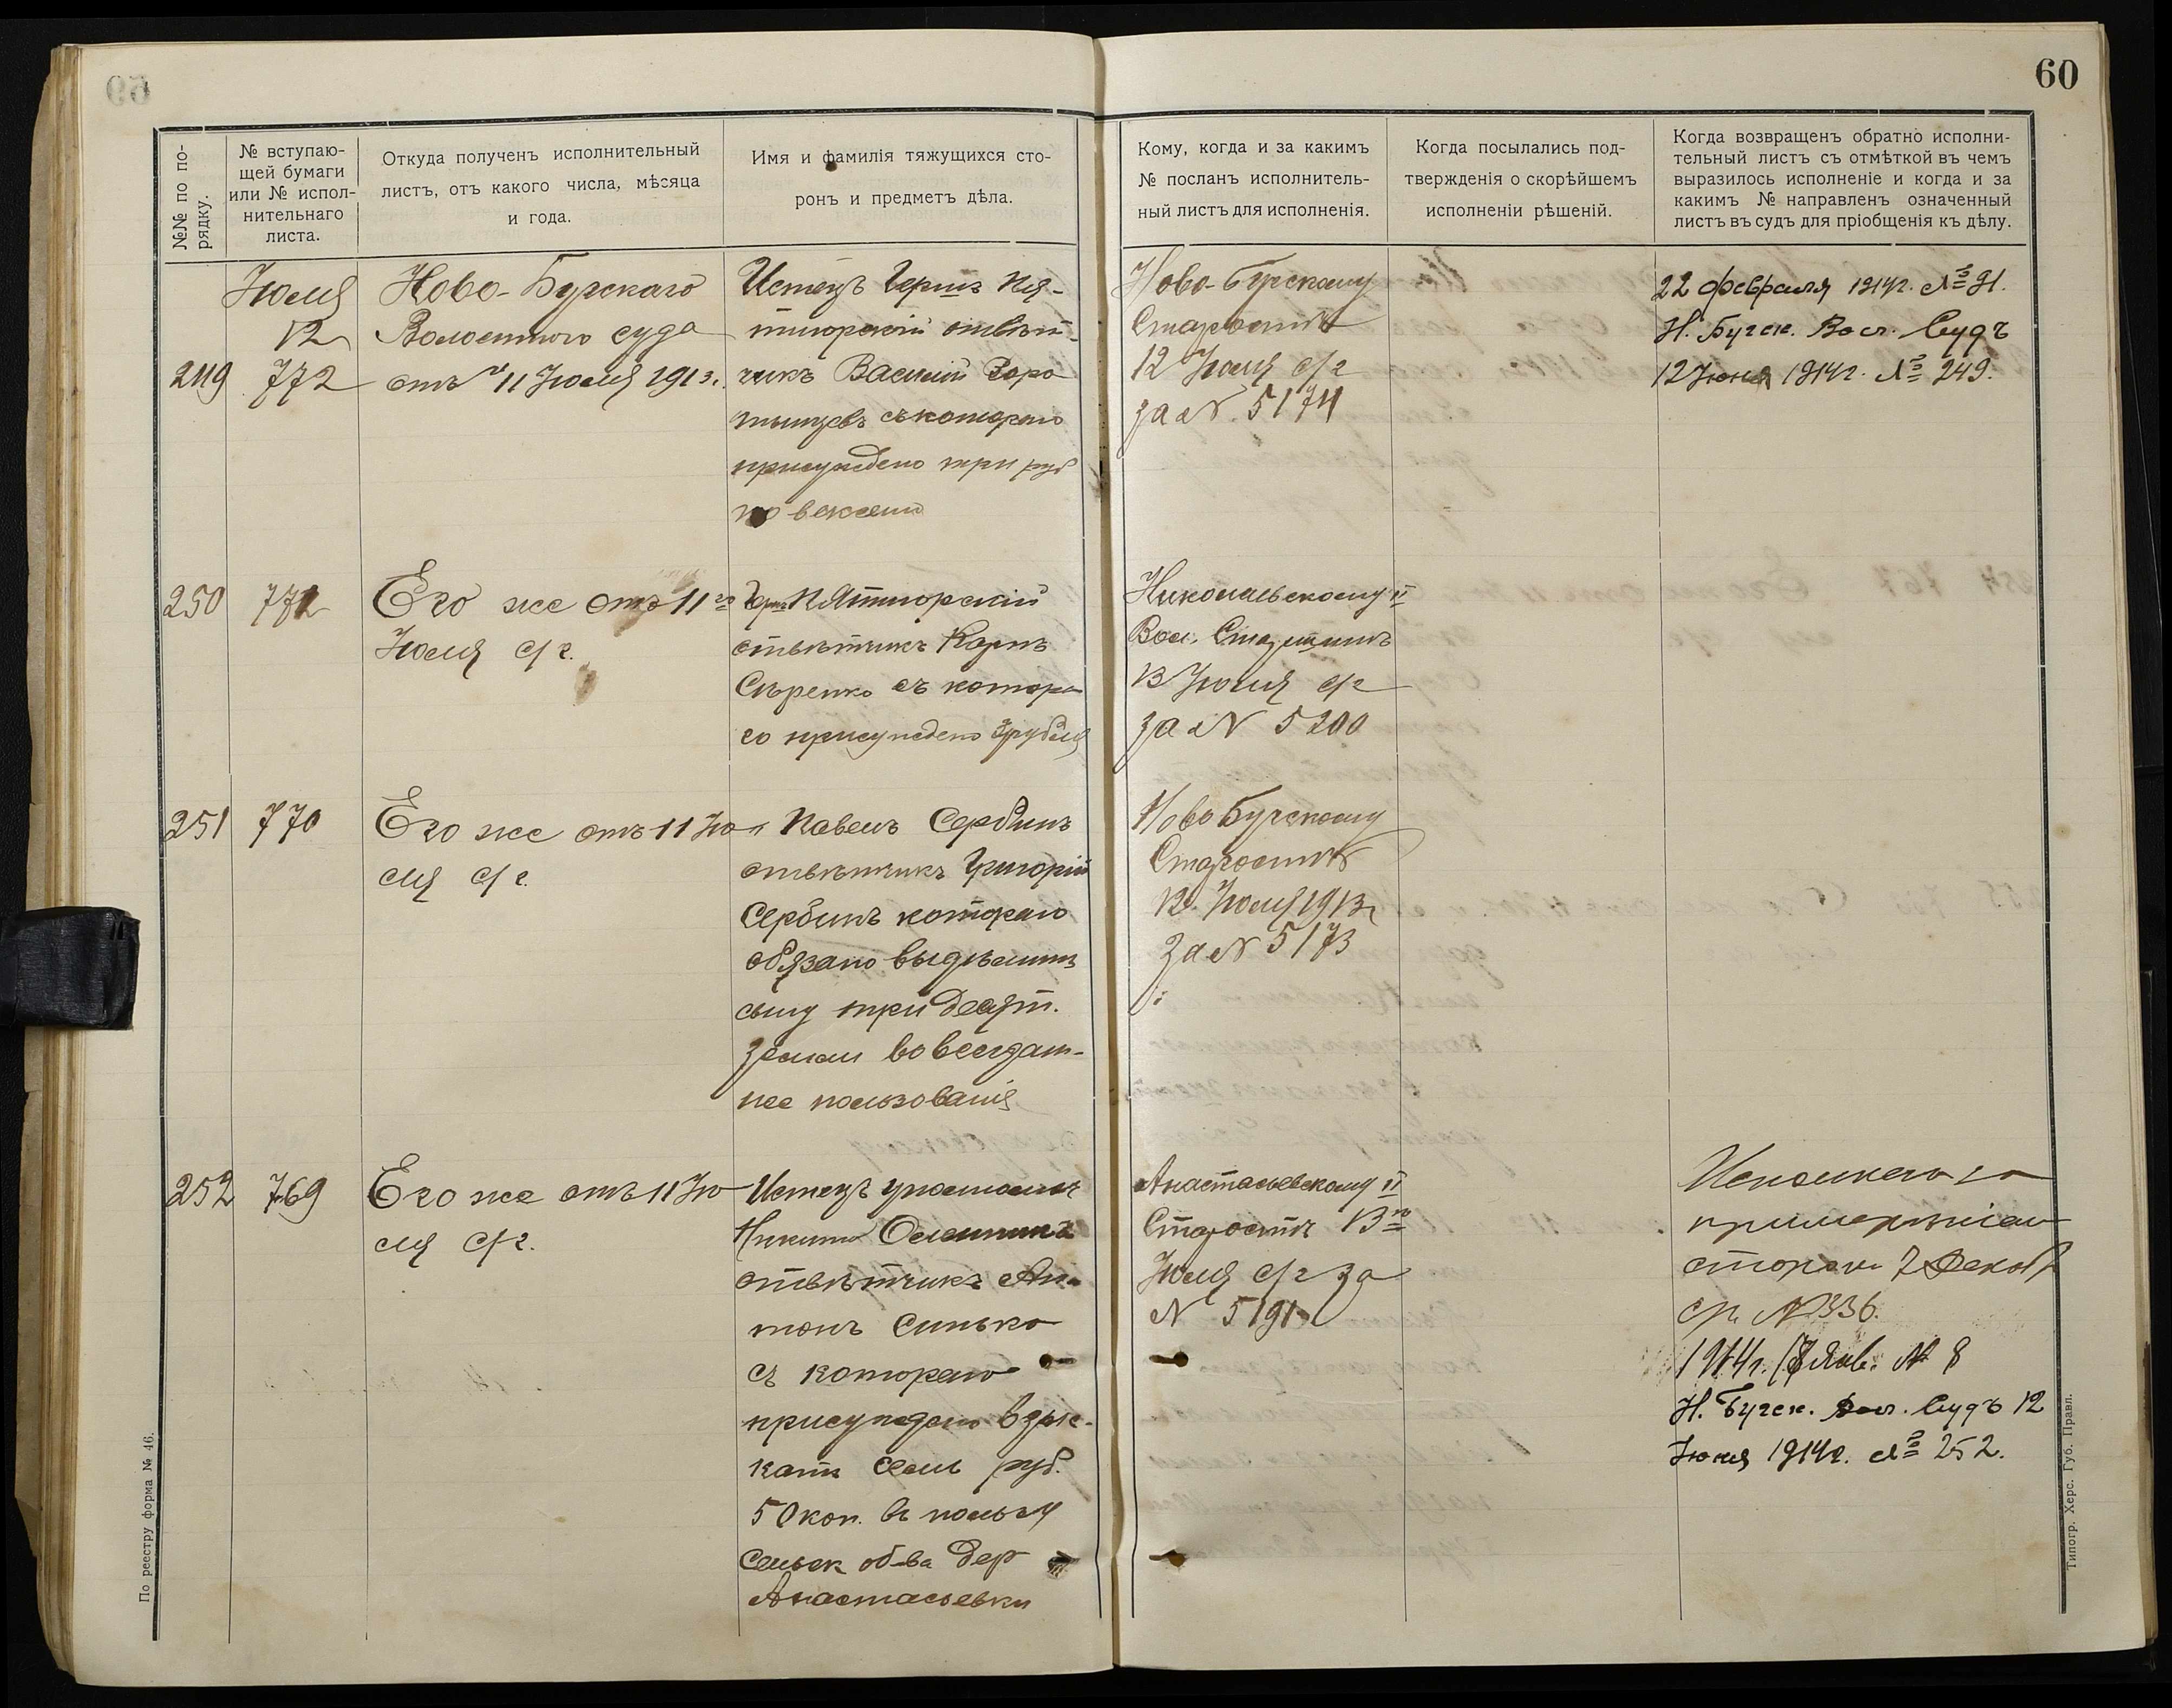 60
№№ по по-
рядку.
№ вступаю-
щей бумаги
или № испол-
нительнаго
листа.
Откуда полученъ исполнительный
листъ, отъ какого числа, мѣсяца
и года.
Имя и фамилія тяжущихся сто-
ронъ и предметъ дѣла.
Кому, когда и за какимъ
№ посланъ исполнитель-
ный листъ для исполненія.
Когда посылались под-
твержденія о скорѣйшемъ
исполненіи рѣшеній.
Когда возвращенъ обратно исполни-
тельный листъ съ отмѣткой въ чемъ
выразилось исполненіе и когда и за
какимъ № направленъ означенный
листъ въ судъ для пріобщенія къ дѣлу.
Іюля
12
249
772
Ново-Бугскаго
Волостного суда
отъ 11 Іюля 1913.
Истецъ Гершъ Пя-
тигорскій отвѣт-
чикъ Василій Заро
тынцевъ съ котораго
присуждено три руб
по векселю
Ново-Бугскому
Старостѣ
12 Іюля с/г
за N 5174
22 февраля 1914г. № 91.
Н. Бугск. Вол. Судъ
12 Іюня 1914г. № 249.
250
771
Его же отъ 11го
Іюля с/г.
Герш Пятигорскій
отвѣтчикъ Карпъ
съ котора
го присуждено 3 рубля
Николаевскому II
Вол. Старшинѣ
13 Іюля с/г
за N 5200
251
770
Его же отъ 11 Ію
ля с/г.
Павелъ Сербинъ
отвѣтчикъ Григорій
Сербинъ котораго
обязано выдѣлить
сыну три десят.
земли во всегдаш-
нее пользованія
Ново Бугскому
Старостѣ
12 Іюля 1913г
за N 5173
252
769
Его же отъ 11 Ію
ля с/г.
Истецъ уполномоч
Никита Олейникъ
отвѣтчикъ Ан-
тонъ Синько
съ котораго
присуждено взыс-
кать семь руб.
50 коп. въ пользу
Сельск об-ва дер
Анастасьевки
Анастасьевскому II
Старостѣ 13го
Іюля с/г за
N 5191
Исполнено за
примиреніем
сторон 7 Декаб
с/г. № 336.
1914г. Янв. № 8
Н. Бугск. Вол. Судъ 12
Іюня 1914г. № 252.
По реестру форма № 46.
Типогр. Херс. Губ. Правл.